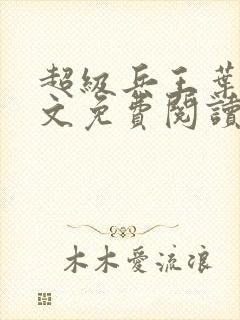 超級兵王葉
文免費閱讀
木木愛流浪